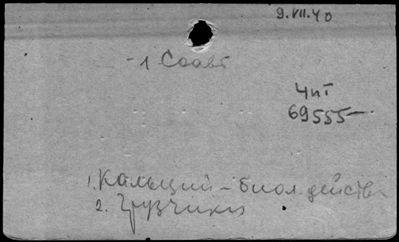 9.VII.40
- 1 Соавт
Чит
69555-
1. Кальций - биол. действ
2. Грузчики